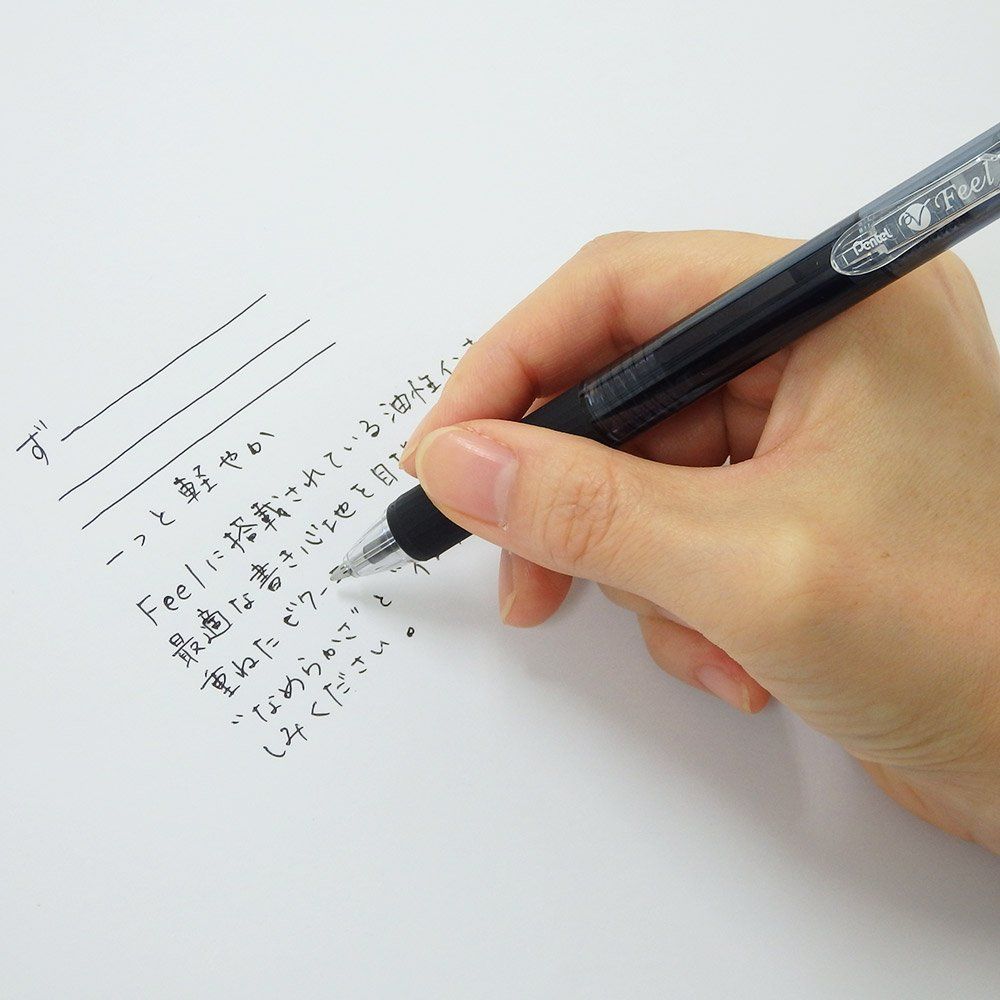 ず
ーっと軽やか
Feelに搭載されている油性インキ
最適な書き心地を目
重ねたビク
"なめらかさ"と
しみください。
Pentel Feel